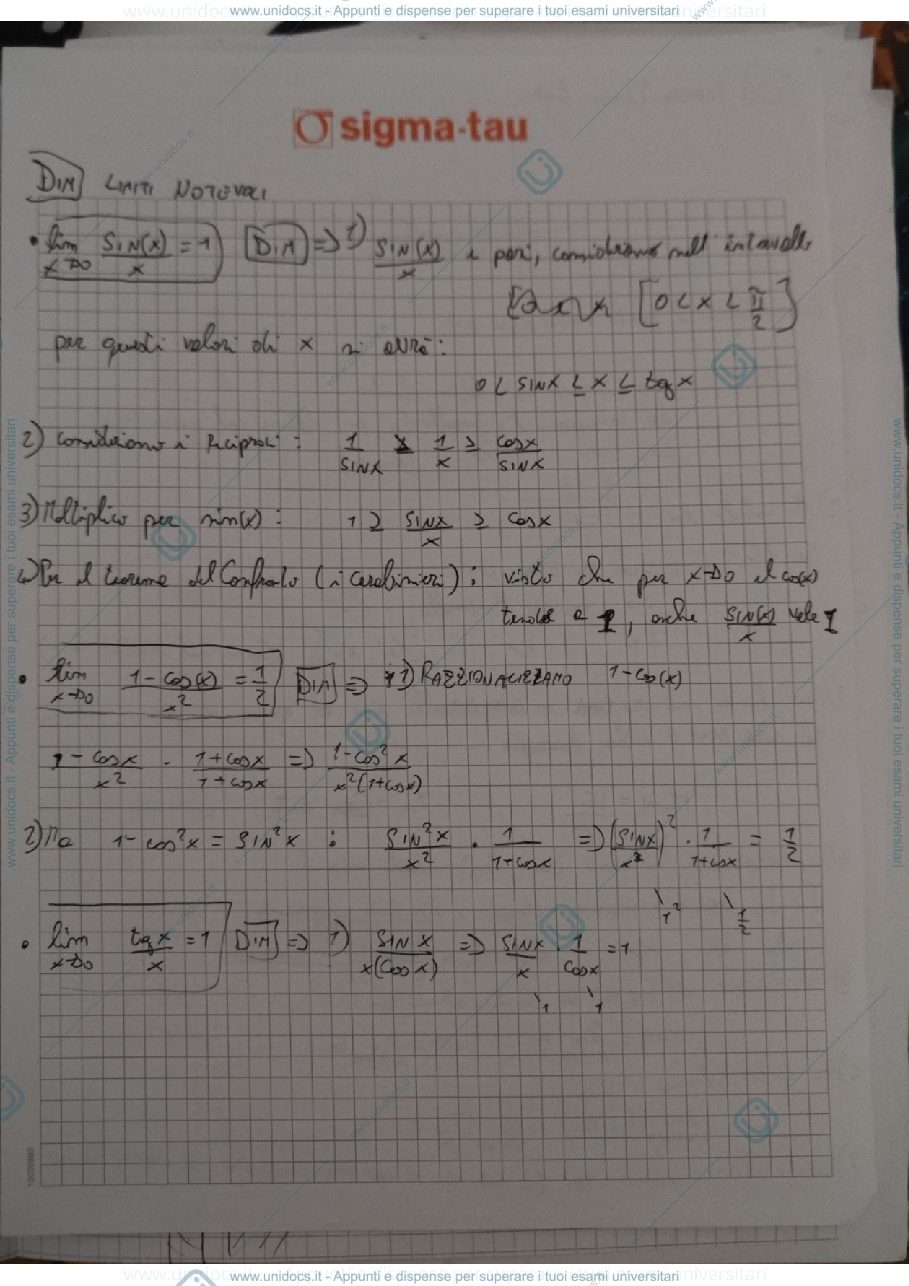 www.unidocs.it - Appunti e dispense per superare i tuoi esami universitari
sigma-tau
DIM LIMITI NOTEVOLI
• lim x→0 SIN(x)/x = 1 DIM => 1) SIN(x)/x è pari, consideriamo nell'intervallo
[0 < x < π/2]
per questi valori di x si avrà:
0 < SINX ≤ x ≤ tg x
2) Consideriamo i Reciproci: 1/SINX ≥ 1/x ≥ cosx/SINX
3) Moltiplico per sin(x): 1 ≥ SINX/x ≥ cosx
4) Per il teorema del Confronto (i carabinieri); visto che per x→0 il cos(x)
tende a 1, anche SIN(x)/x vale 1
• lim x→0 1-cos(x)/x² = 1/2 DIM => 1) RAZZIONALIZZIAMO 1-cos(x)
1-cosx/x² · 1+cosx/1+cosx => 1-cos²x/x²(1+cosx)
2) Ma 1-cos²x = SIN²x : SIN²x/x² · 1/1+cosx => (SINX/x)² · 1/1+cosx = 1/2
1² 1/2
• lim x→0 tg x/x = 1 DIM => 1) SINX/x(cosx) => SINX/x · 1/cosx = 1
1 1
www.unidocs.it - Appunti e dispense per superare i tuoi esami universitari